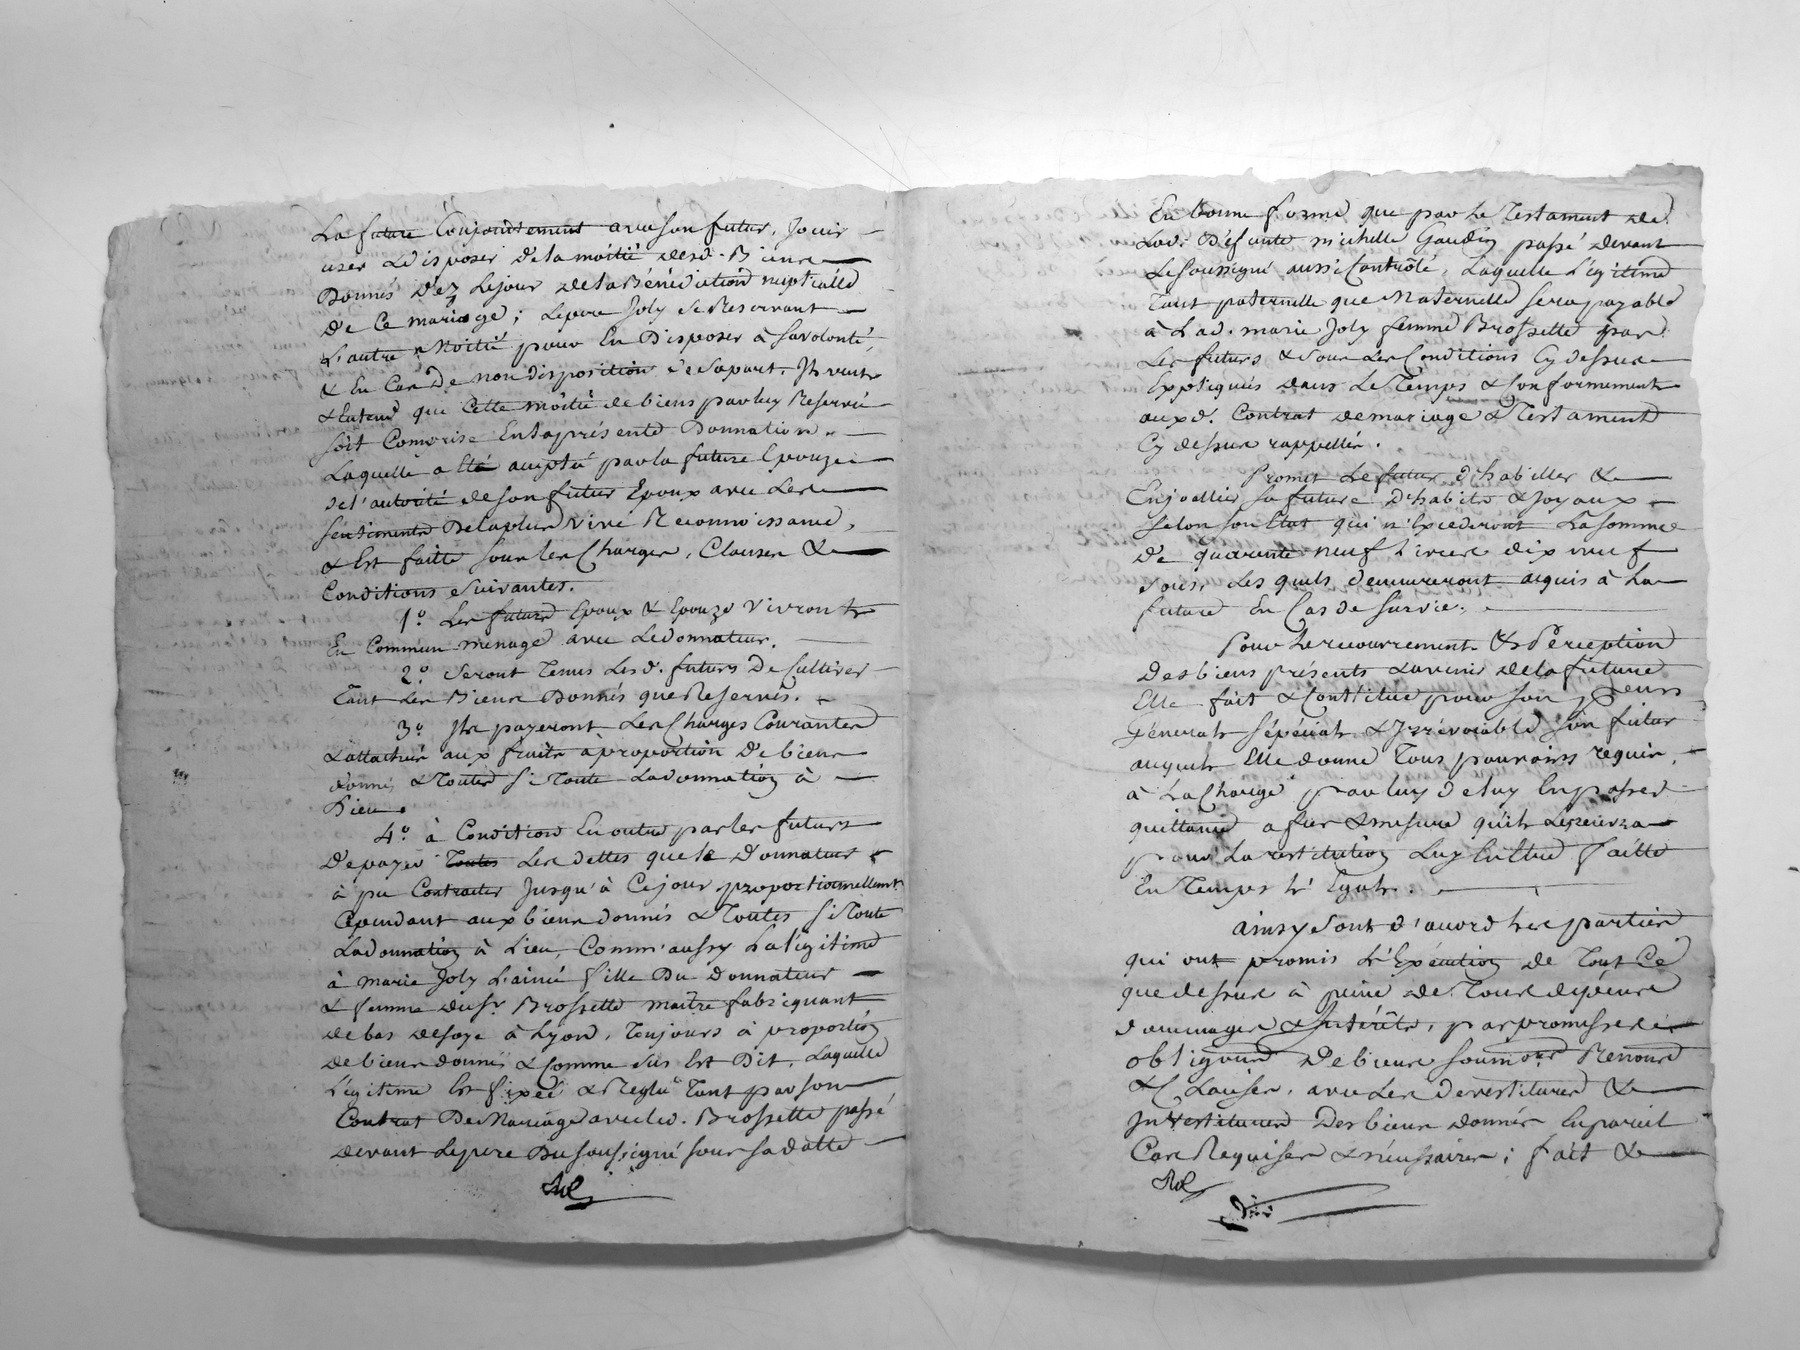 La future Conjointement avec son futur, Jouir
user & disposer de la moitié desd. Biens
Donnés dez le jour de la Bénédiction nuptialle
de Ce mariage; Le pere Joly se Reservant
L'autre Moitié pour En Disposer à sa volonté,
& En Cas De non disposition de sa part Il veut
& Entend que Cette moitié de biens par luy Reservée
soit Comprise En la présente Donnation.
Laquelle a Eté accepté par la future Epouze
de l'autorité de son futur Epoux avec Les
sentiments De la plus vive Reconnoissance,
& Est faitte sous les Charges, Clauses &
Conditions suivantes.
1°. Les futurs Epoux & Epouze vivront
En Commun menage avec Le donnateur.
2°. Seront Tenus Lesd. futurs De Cultiver
Tant les Biens Donnés que Reservés.
3°. Ils payeront Les Charges Courantes
& attachés aux fruits a proportion De biens
donnés & Toutes si Toute La donnation à
Lieu.
4°. à Condition En outre par les futurs
De payer Toutes Les dettes que le Donnateur
à pu Contracter Jusqu'à Ce jour proportionnellement
Cependant aux biens donnés & Toutes si Toute
La donnation à Lieu, Comm'aussy La légitime
à marie Joly L'ainée fille Du Donnateur
& femme du Sr. Brossette maitre fabriquant
de bas de soye à Lyon, Toujours à proportion
de biens donnés & Comme dis Est Dit, Laquelle
légitime Est fixée & Reglée Tant par son
Contrat De Mariage avec led. Brossette passé
devant Le pere Du soussigné sous sa datte
En bonne forme que par Le Testament de
Lad. Défunte michelle Gaudin passé devant
Le Soussigné aussi Contrôlé, Laquelle légitime
Tant paternelle que Maternelle sera payable
à Lad. marie Joly femme Brossette par
Les futurs & sous Les Conditions Cy dessus
Expliquées dans Le Temps & Conformement
auxd. Contrat de mariage & Testament
Cy dessus rappellés.
Promet Le futur d'habiller &
Enjoallier sa future d'habits & Joyaux
selon son Etat qui n'Excederont La somme
de quarante neuf Livres dix neuf
sous, Les quels demeureront acquis à La
future En Cas de survie.
Pour Le recouvrement & Perception
Des biens présents & avenir de la future
Elle fait & Constitue pour son pr eurs
général spécial & Irrévocable son futur
auquel Elle donne Tous pouvoirs requis,
à La Charge par luy de luy En passer
quittance a fur & mesure qu'il Les recevra
pour La restitution Luy En Etre faitte
En Temps & Egals.
ainsy sont d'accord Les parties
qui ont promis L'Execution de Tout Ce
que dessus à peine de Tous depens
dommages & Intérêts, par promesses
obligations De biens soumons Renons
& Clauses, avec Les devestitures &
Investitures Des biens donnés En pareil
Cas Requises & nécessaires; fait &